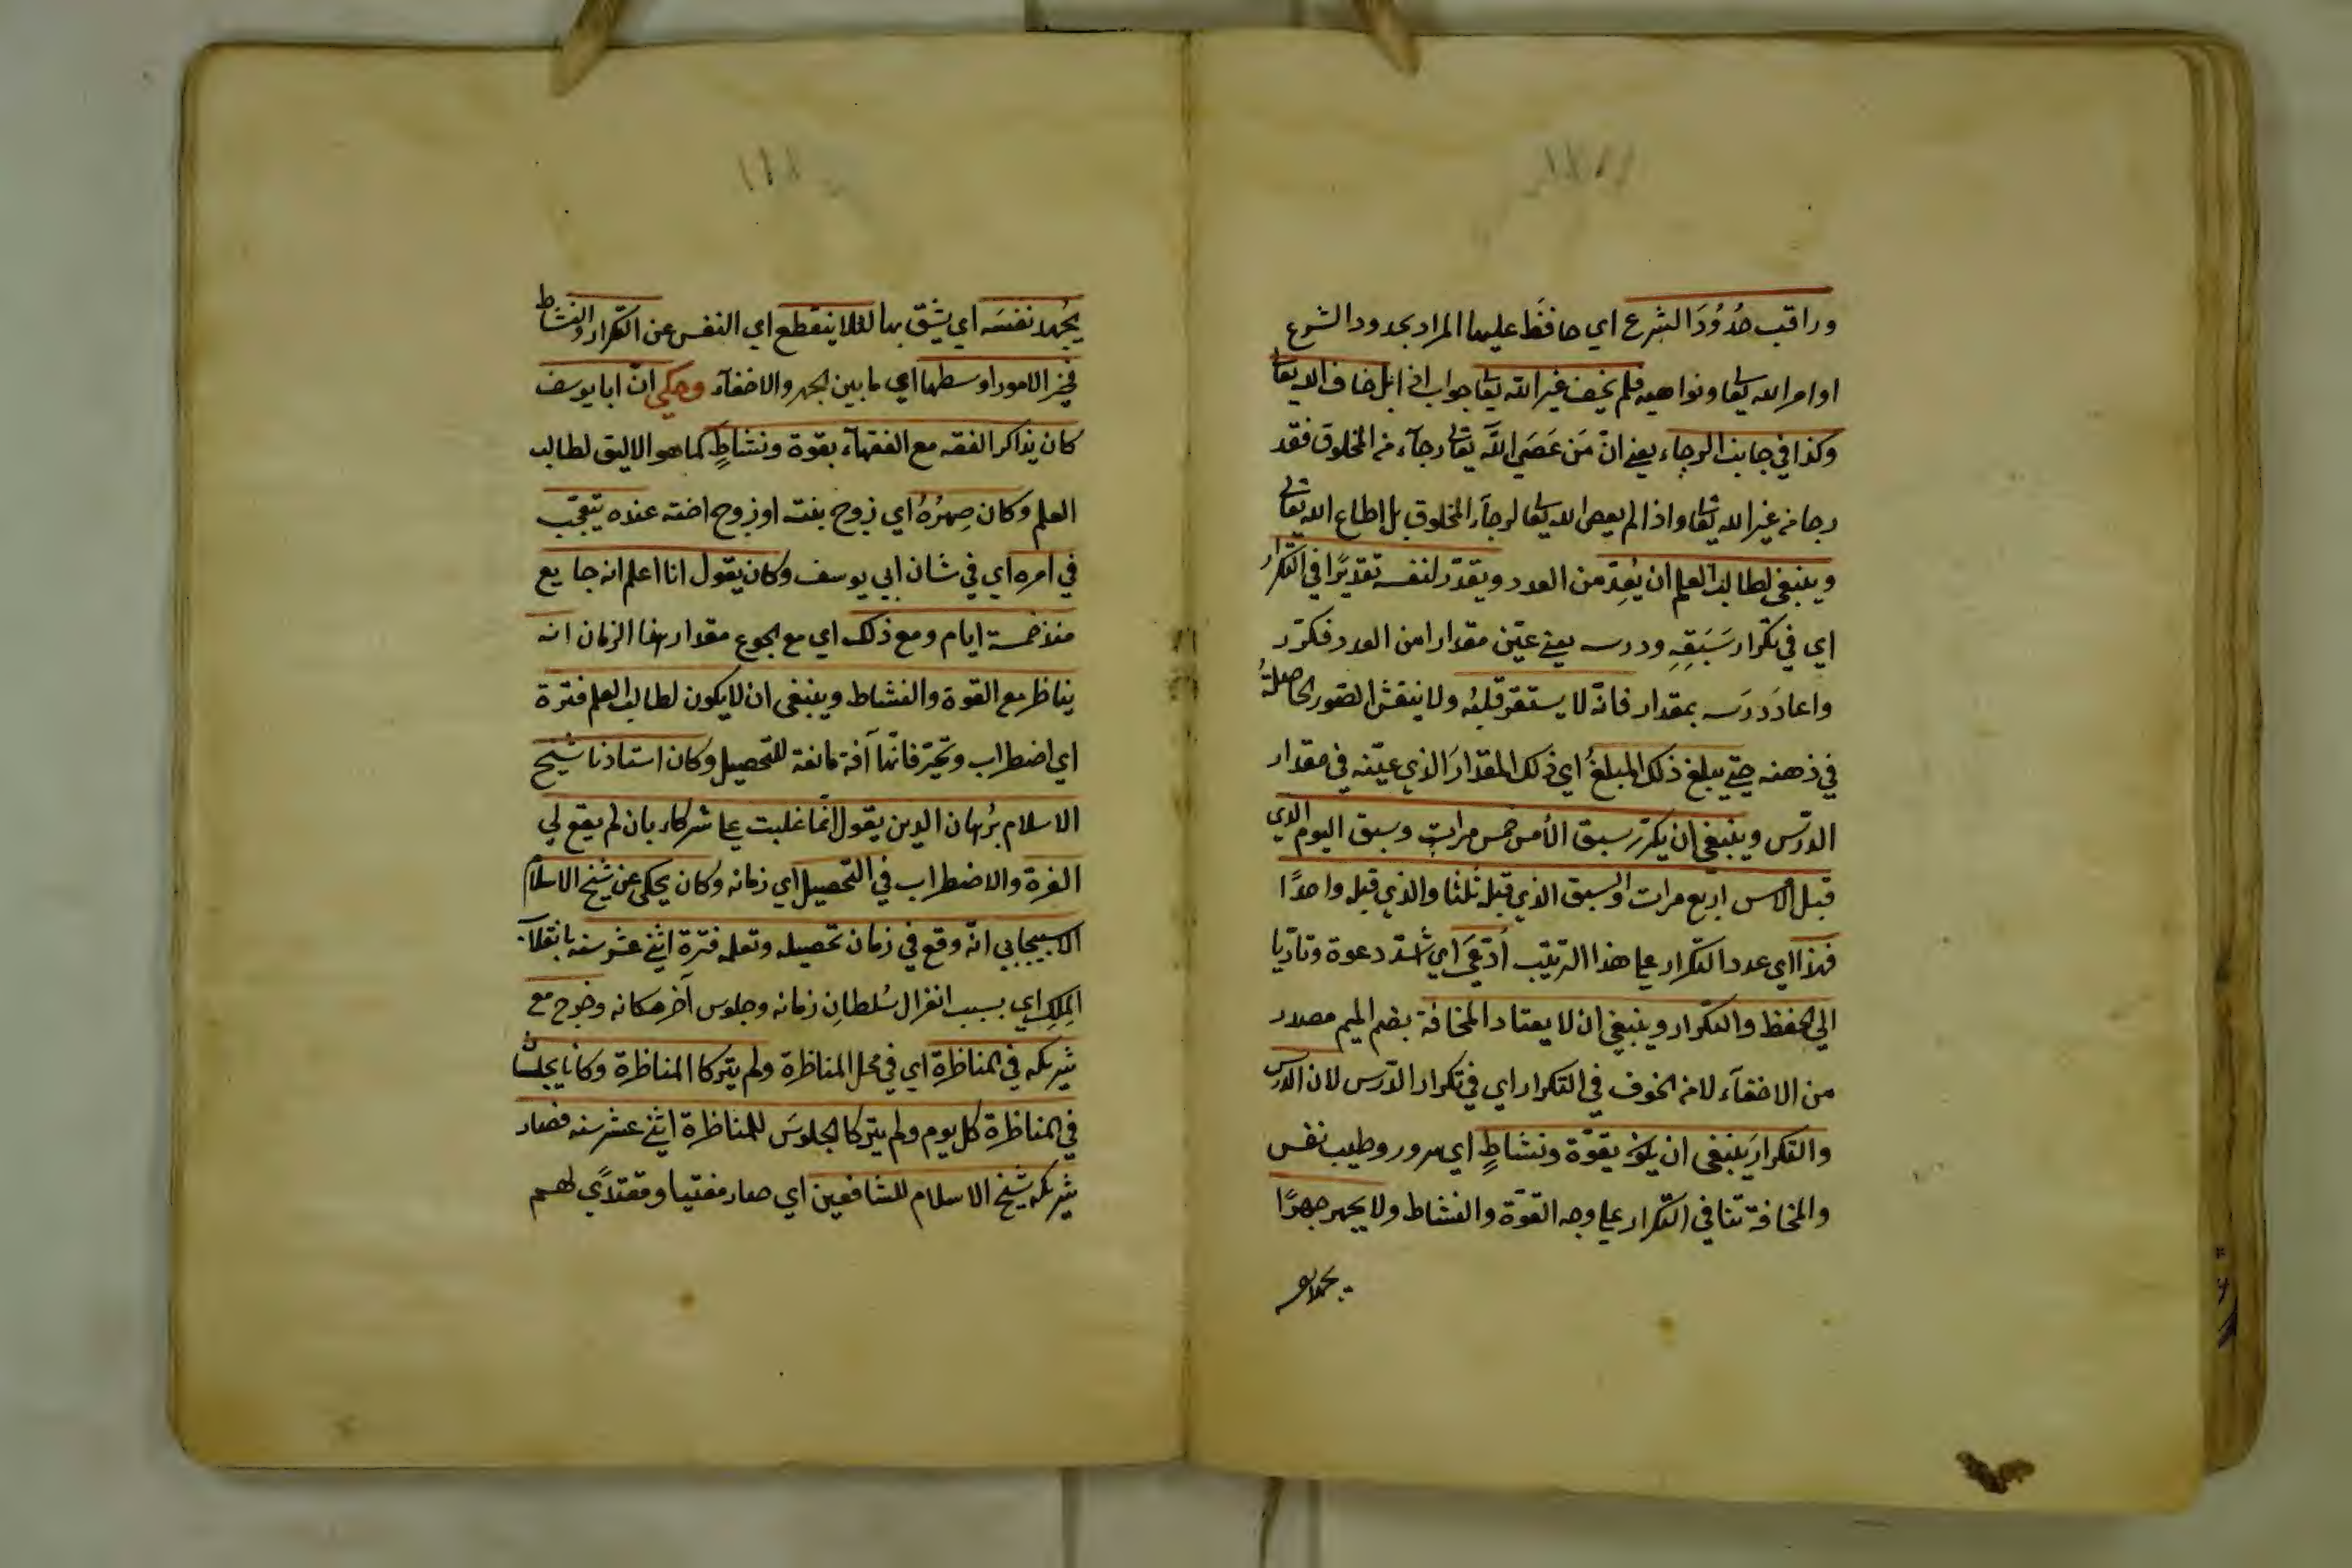 وراقب حُدُوْدَ الشرع اي حافَظَ عليها المراد بحدود الشرع
اوامر الله تعا ونواهيه فلم يخف غير الله تعا جواب اذا بل خاف الله تعا
وكذا في جانب الرجاء يعني انّ مَن عَصَى اللّه تعا رجآء من المخلوق فقد
رجا من غير الله تعا واذا لم يعص الله تعا لرجآء المخلوق بل اطاع الله تعا
وينبغي لطالب العلم ان يُعِدّ من العدد ويقدّر لنفسه تقديرًا في التكرار
اي في تكرار سَبَقِهِ ودرسه يعني عيّن مقدارا من العدد فكرّر
واعادَ درَسه بمقدار فانّه لا يستقرّ قلبُه ولا ينقش الصّور الحاصلةُ
في ذهنه حتي يبلغ ذلك المبلغُ اي ذلك المقدارَ الذي عيّنه في مقدار
الدّرس وينبغي ان يكرّر سبق الأمس خمس مرات وسبق اليوم الذي
قبل الامس اربع مرات والسبق الذي قبله ثلثا والذي قبله واحدًا
فهذا اي عدد التكرار علي هذا الترتيب أدعَي اي اشدّ دعوة وتاديا
الي الحفظ والتكرار وينبغي ان لا يعتاد المخافة بضم الميم مصدر
من الاخفآء لا من الخوف في التكرار اي في تكرار الدّرس لان الدرس
والتكرارَ ينبغي ان يكون بقوّة ونشاطٍ اي سرور وطيب نفس
والمخافة تنافي التكرار علي وجه القوّة والنشاط ولا يجهر جهرًا
يُجْهد نفسَه اي يشقّ بها لئلا ينقطع اي النفس عن التكرار والنشاط
فخير الامور اوسطها اي ما بين الجهر والاخفآء وحكي انّ ابا يوسف
كان يذاكر الفقه مع الفقهآء بقوة ونشاطٍ كما هو الاليق لطالب
العلم وكان صِهرُهُ اي زوج بنته او زوج اخته عنده يتعجّب
في امره اي في شان ابي يوسف وكان يقول انا اعلم انه جايع
منذ خمسة ايام ومع ذلك اي مع الجوع مقدار هذا الزمان انه
يناظر مع القوة والنشاط وينبغي ان لا يكون لطالب العلم فترة
اي اضطراب وتحيّر فانّها آفة مانعة للتحصيل وكان استاذنا شيخ
الاسلام برُهان الدين يقول انّما غلبت علي شركاء بان لم يقع لي
الفرة والاضطراب في التحصيل اي زمانه وكان يحكي عن شيخ الاسلام
الاسبيجابي انّه وقع في زمان تحصيله وتعلمه فترة اثني عشر سنة بانقلاب
المِلك اي بسبب انعزال سُلطانِ زمانه وجلوس آخر مكانه وخرج مع
شريكه في المناظرة اي في محل المناظرة ولم يتركا المناظرة وكانا يجلسان
في المناظرة كل يوم ولم يتركا الجلوسَ للمناظرة اثني عشر سنة فصار
شريكه شيخ الاسلام للشافعين اي صار مفتيا ومقتدًي لهم